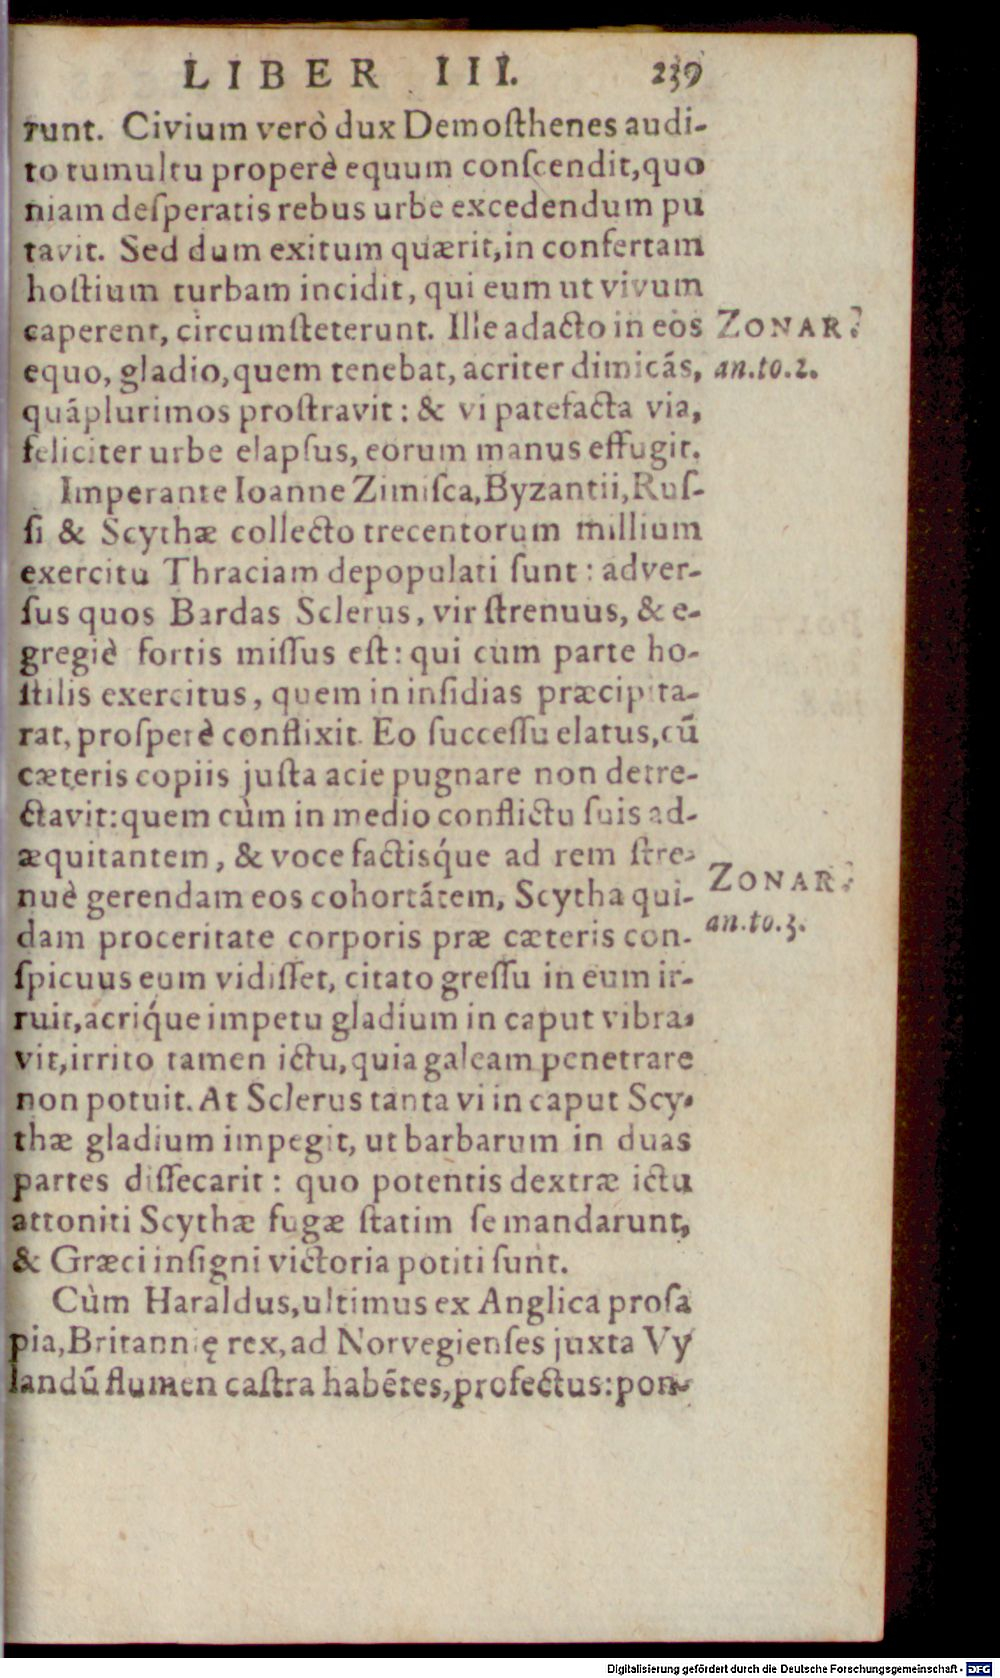 LIBER III. 239
runt. Civium verò dux Demoſthenes audi-
to tumultu properè equum conſcendit, quo
niam deſperatis rebus urbe excedendum pu
tavit. Sed dum exitum quærit, in confertam
hoſtium turbam incidit, qui eum ut vivum
caperent, circumſteterunt. Ille adacto in eos
ZONAR.
equo, gladio, quem tenebat, acriter dimicãs,
an. to. 2.
quãplurimos proſtravit: & vi patefacta via,
feliciter urbe elapſus, eorum manus effugit.
Imperante Ioanne Zimiſca, Byzantii, Ruſ-
ſi & Scythæ collecto trecentorum millium
exercitu Thraciam depopulati ſunt: adver-
ſus quos Bardas Sclerus, vir ſtrenuus, & e-
gregiè fortis miſſus eſt: qui cum parte ho-
ſtilis exercitus, quem in inſidias præcipita-
rat, proſperè conflixit. Eo ſucceſſu elatus, cũ
cæteris copiis juſta acie pugnare non detre-
ctavit: quem cùm in medio conflictu ſuis ad-
æquitantem, & voce factisq́ue ad rem ſtre-
nuè gerendam eos cohortãtem, Scytha qui-
ZONAR.
dam proceritate corporis præ cæteris con-
an. to. 3.
ſpicuus eum vidiſſet, citato greſſu in eum ir-
ruit, acriq́ue impetu gladium in caput vibra-
vit, irrito tamen ictu, quia galeam penetrare
non potuit. At Sclerus tanta vi in caput Scy-
thæ gladium impegit, ut barbarum in duas
partes diſſecarit: quo potentis dextræ ictu
attoniti Scythæ fugæ ſtatim ſe mandarunt,
& Græci inſigni victoria potiti ſunt.
Cùm Haraldus, ultimus ex Anglica proſa
pia, Britannię rex, ad Norvegienſes juxta Vy
landũ flumen caſtra habẽtes, profectus: pon-
Digitalisierung gefördert durch die Deutsche Forschungsgemeinschaft - DFG